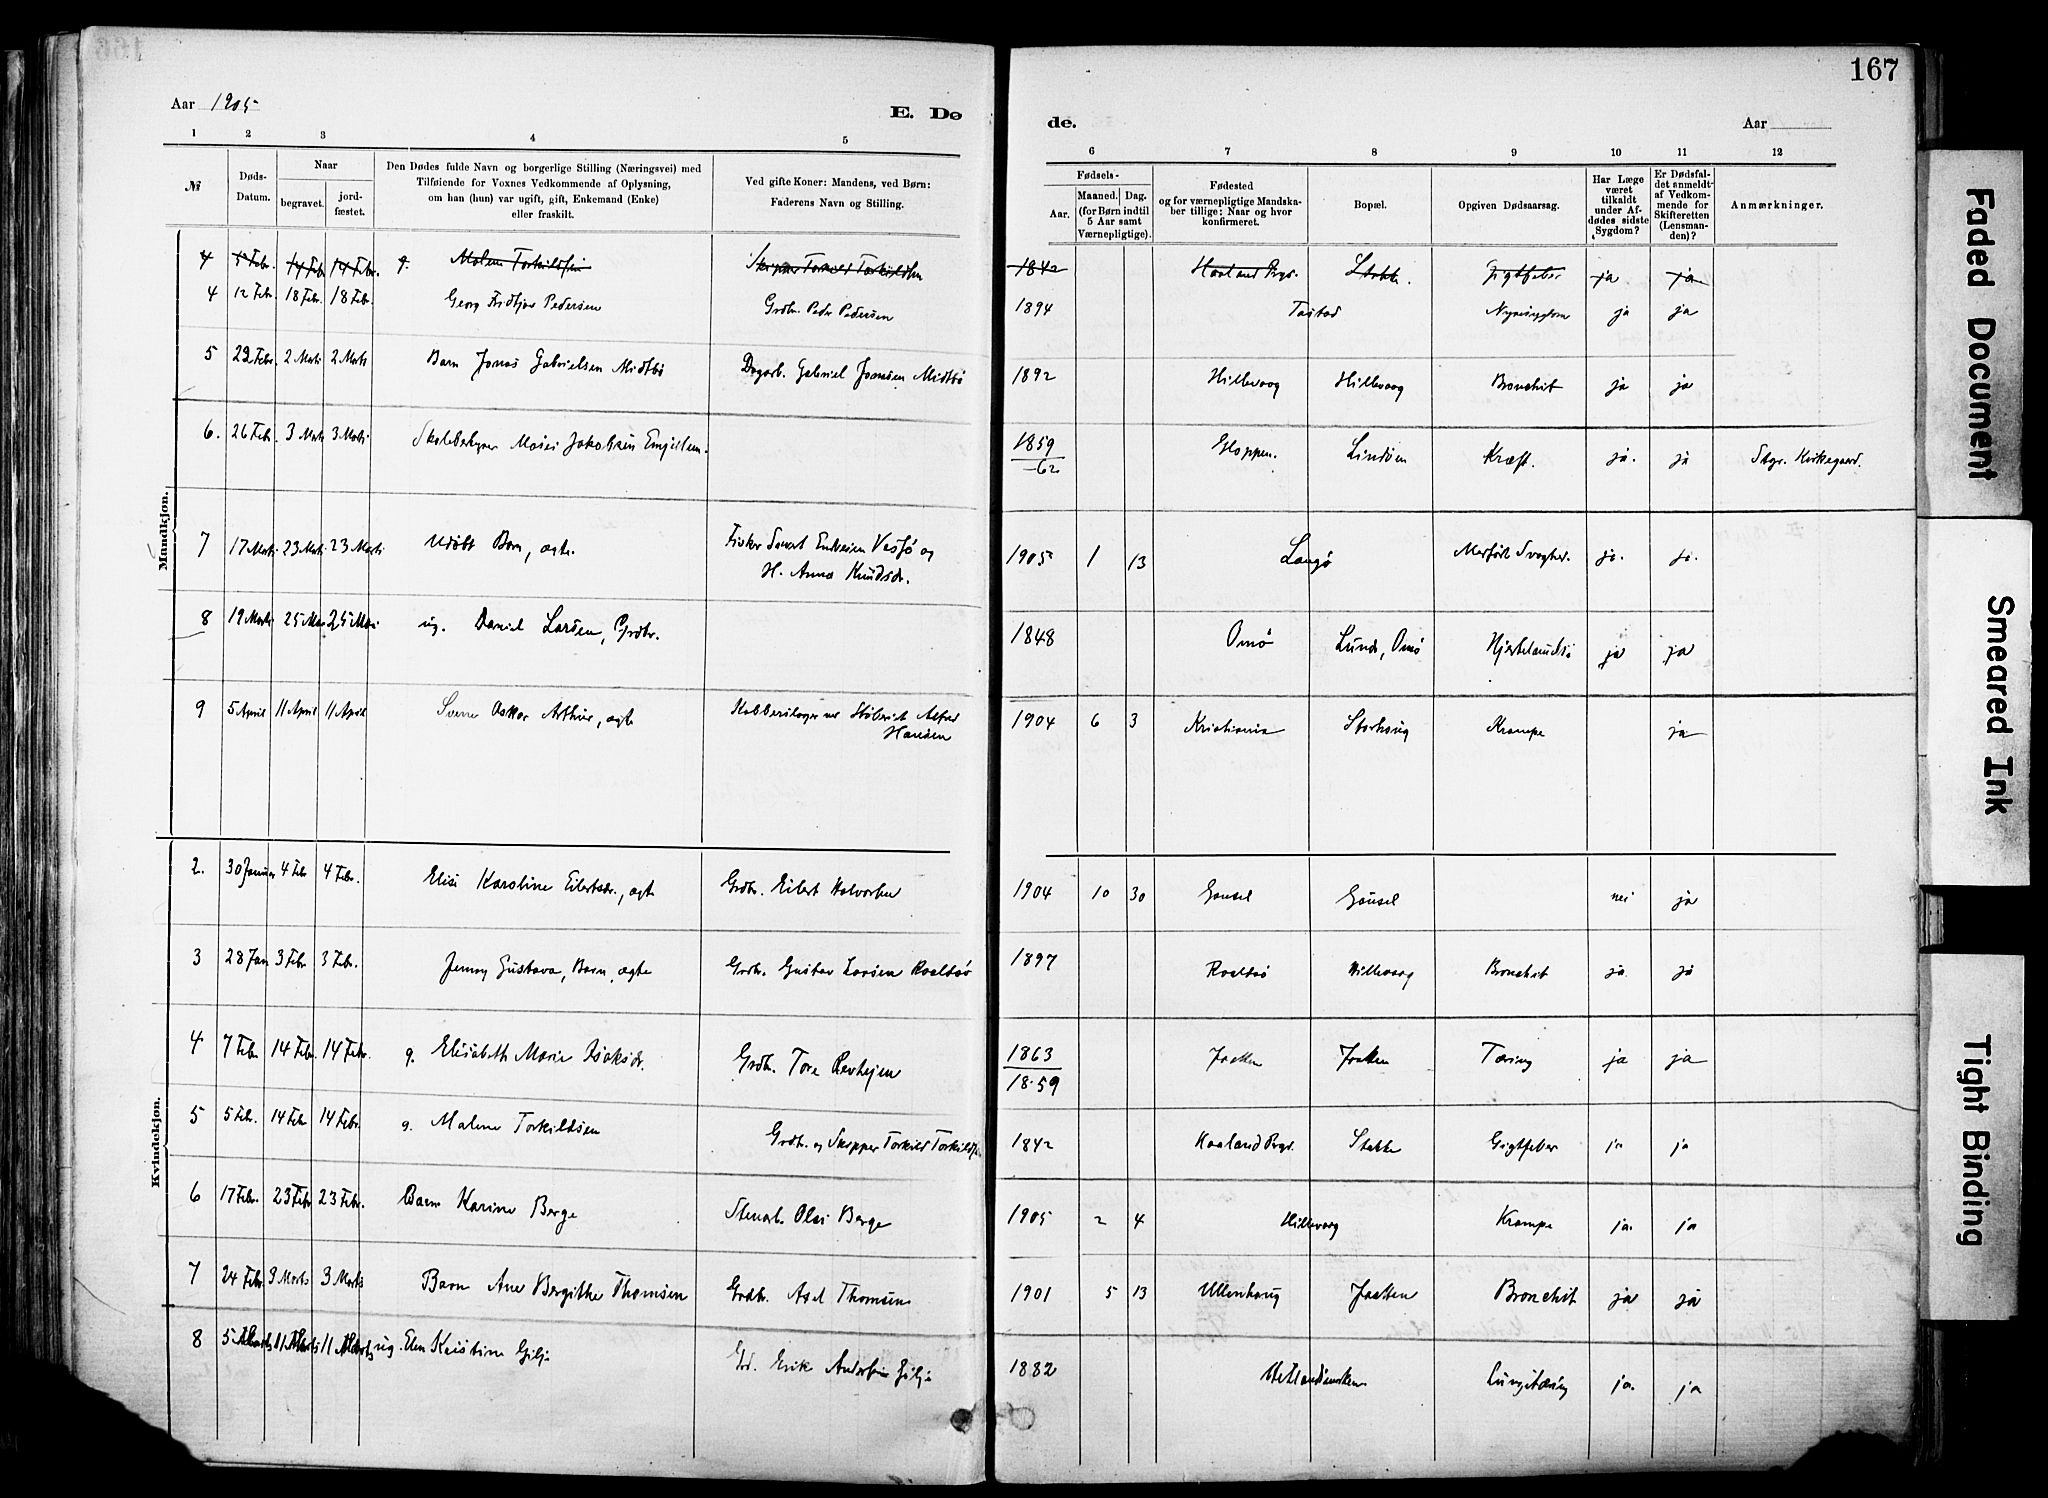 167
Aar 1905
E. Dø
de.
Aar
1 2 3 4 5
6 7 8 9 10 11 12
№
Døds-Datum.
Naar
begravet.
jord-fæstet.
Den Dødes fulde Navn og borgerlige Stilling (Næringsvei) med
Tilføiende for Voxnes Vedkommende af Oplysning,
om han (hun) var ugift, gift, Enkemand (Enke)
eller fraskilt.
Ved gifte Koner: Mandens, ved Børn:
Faderens Navn og Stilling.
Fødsels-
Aar.
Maaned. Dag.
(for Børn indtil
5 Aar samt
Værnepligtige).
Fødested
og for værnepligtige Mandska-
ber tillige: Naar og hvor
konfirmeret.
Bopæl.
Opgiven Dødsaarsag.
Har Læge
været
tilkaldt
under Af-
dødes sidste
Sygdom?
Er Dødsfal-
det anmeldt
af Vedkom-
mende for
Skifteretten
(Lensman-
den)?
Anmærkninger.
Mandkjøn.
4 Febr. 14 Febr. 14 Febr. g. Malene Torkildsen Torkild Torkildsen 1842 Haaland Stokke. Gigtfeber ja ja
4 12 Febr. 18 Febr. 18 Febr. Georg Fridtjov Pedersen Grdbr. Peder Pedersen 1894 Tastad Nyresygdom ja ja
5 23 Febr. 2 Marts 2 Marts Barn Jonas Gabrielsen Midtbø Dagarb. Gabriel Jonasen Midtbø 1892 Hillevaag Hillevaag Bronchit ja ja
6. 26 Febr. 3 Marts 3 Marts Skolebestyrer Mosei Jakobsen 1859 Gloppen. Lindøen Kræft. ja. ja Kirkegaard.
-62
7 17 Marts 23 Marts 23 Marts Udøbt Barn, ægte. Fisker Enevesen Vestbø og 1905 1 13 Langø Medfødt Svaghed. ja. ja.
H. Anna Knudsdr.
8 19 Marts 25 Marts 25 Marts ug. Daniel Larsen, Grdbr. 1848 Omø Lunde, Omø ja ja
9 5 April 11 April 11 April Sverre Oskar Arthur, ægte Kobberslager Alfred 1904 6 3 Kristiania Storhaug Krampe ja
Hansen
Kvindekjøn.
2. 30 Januar 4 Febr 4 Febr. Elise Karoline Eilertsdr., ægte Grdbr. Eilert Halvorsen 1904 10 30 Gausel Gausel nei ja
3 28 Jan 3 Febr 3 Febr. Jenny Gustava, Barn, ægte Grdbr. Gustav Larsen Roaltsø 1897 Roaltsø Hillevaag Bronchit ja ja
4 7 Febr. 14 Febr. 14 Febr. g. Elisabeth Marie Isaksdr. Grdbr. Tore Revhejen 1863 Jaatten Jaatten Tæring ja ja
18-59
5 5 Febr. 14 Febr 14 Febr. g. Malene Torkildsen Grdbr. og Skipper Torkild Torkildsen 1842 Haaland Prgj. Stokke Gigtfeber ja ja
6 17 Febr. 23 Febr 23 Febr. Barn Karine Berge Stenarb. Olai Berge 1905 2 4 Hillevaag Krampe ja. ja
7 24 Febr. 3 Marts 3 Marts Barn Ane Bergithe Thomsen Grdbr. Axel Thomsen 1901 5 13 Ullenhaug Jaatten Bronchit ja ja
8 5 Marts 11 Marts 11 Marts ug. Elen Kristine Gilje Erik Andersen Gilje 1882 Hetlandsmarken Lungetæring ja. ja
Faded Document
Smeared Ink
Tight Binding